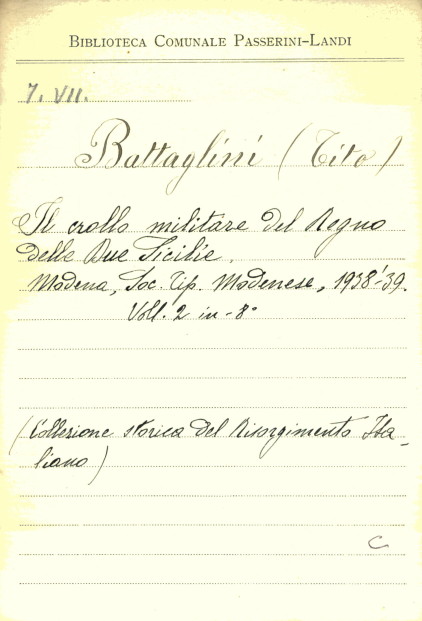 BIBLIOTECA COMUNALE PASSERINI-LANDI
7. VII.
Battaglini (Tito)
Il crollo militare del Regno
delle Due Sicilie.
Modena, Soc. Tip. Modenese, 1938-39.
Voll. 2 in-8°
(Collezione storica del Risorgimento Ita-
liano)
C